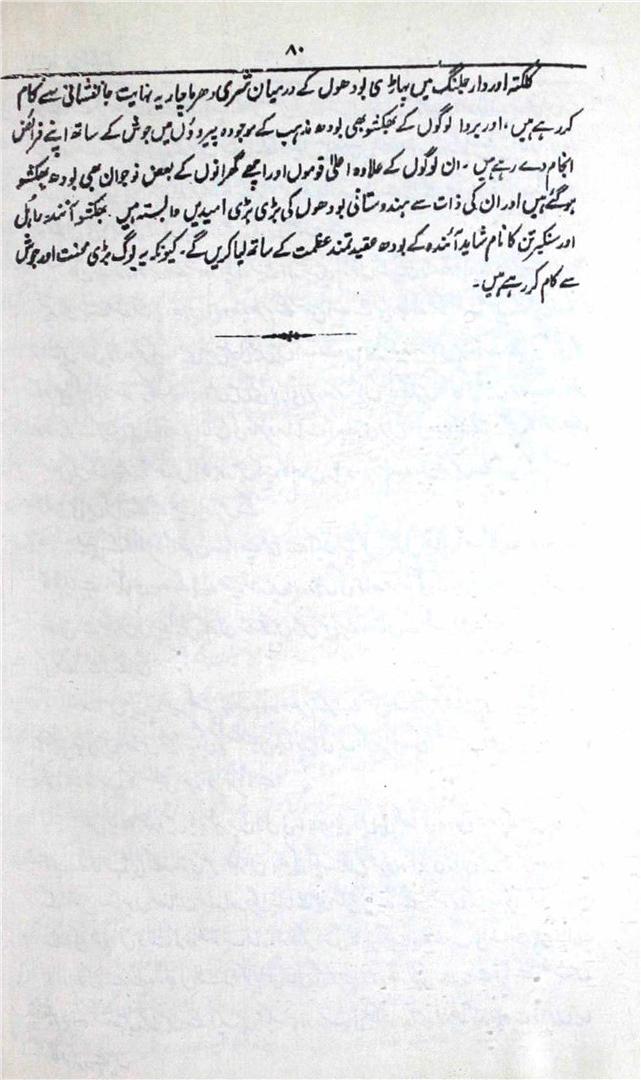 ۸۰
کلکتہ اور دارجلنگ میں پہاڑی بودھوں کے درمیان شری دھرما چاریہ نہایت جانفشانی سے کام
کر رہے ہیں، اور بردا لوگوں کے بھکشو بھی بودھ مذہب کے موجودہ پیروؤں میں جوش کے ساتھ اپنے فرائض
انجام دے رہے ہیں۔ ان لوگوں کے علاوہ اعلیٰ قوموں اور اچھے گھرانوں کے بعض نوجوان بھی بودھ بھکشو
ہو گئے ہیں اور ان کی ذات سے ہندوستانی بودھوں کی بڑی بڑی امیدیں وابستہ ہیں۔ بھکشو آنند، ماہل
اور سنکیرتن کا نام شاید آئندہ کے بودھ عقیدتمند عظمت کے ساتھ لیا کریں گے، کیونکہ یہ لوگ بڑی محنت اور جوش
سے کام کر رہے ہیں۔